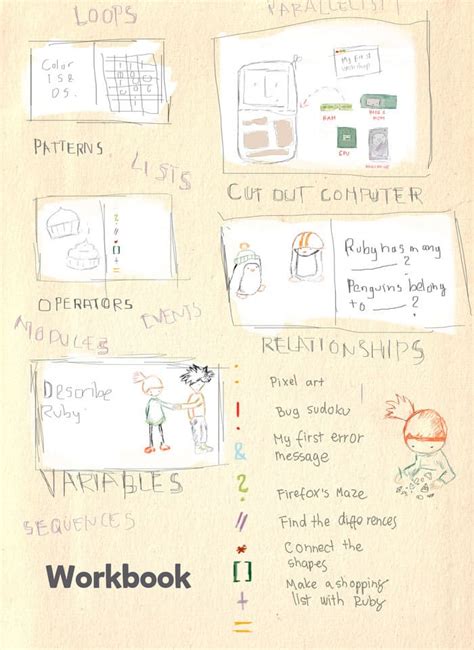 LOOPS
PARALLELISM
Color
1S &
0S.
My first
workshop
RAM
CPU
PATTERNS
LISTS
CUT OUT COMPUTER
Ruby has many
?
Penguins belong
to ?
OPERATORS
EVENTS
MODULES
RELATIONSHIPS
Describe
Ruby:
VARIABLES
SEQUENCES
Pixel art
Bug sudoku
My first error
message
Firefox's Maze
Find the differences
Connect the
shapes
Make a shopping
list with Ruby
!
&
?
//
*
[ ]
+
=
Workbook